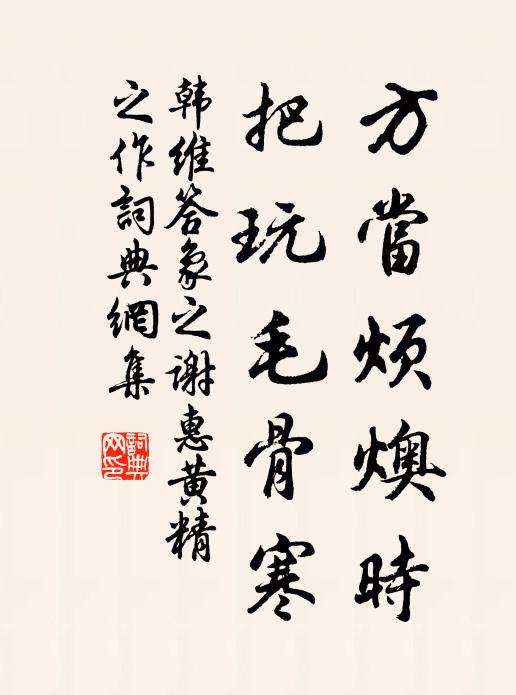 方當煩燠時
把玩毛骨寒
韩維答象之謝惠黄精
之作詞典網集
詞典网印